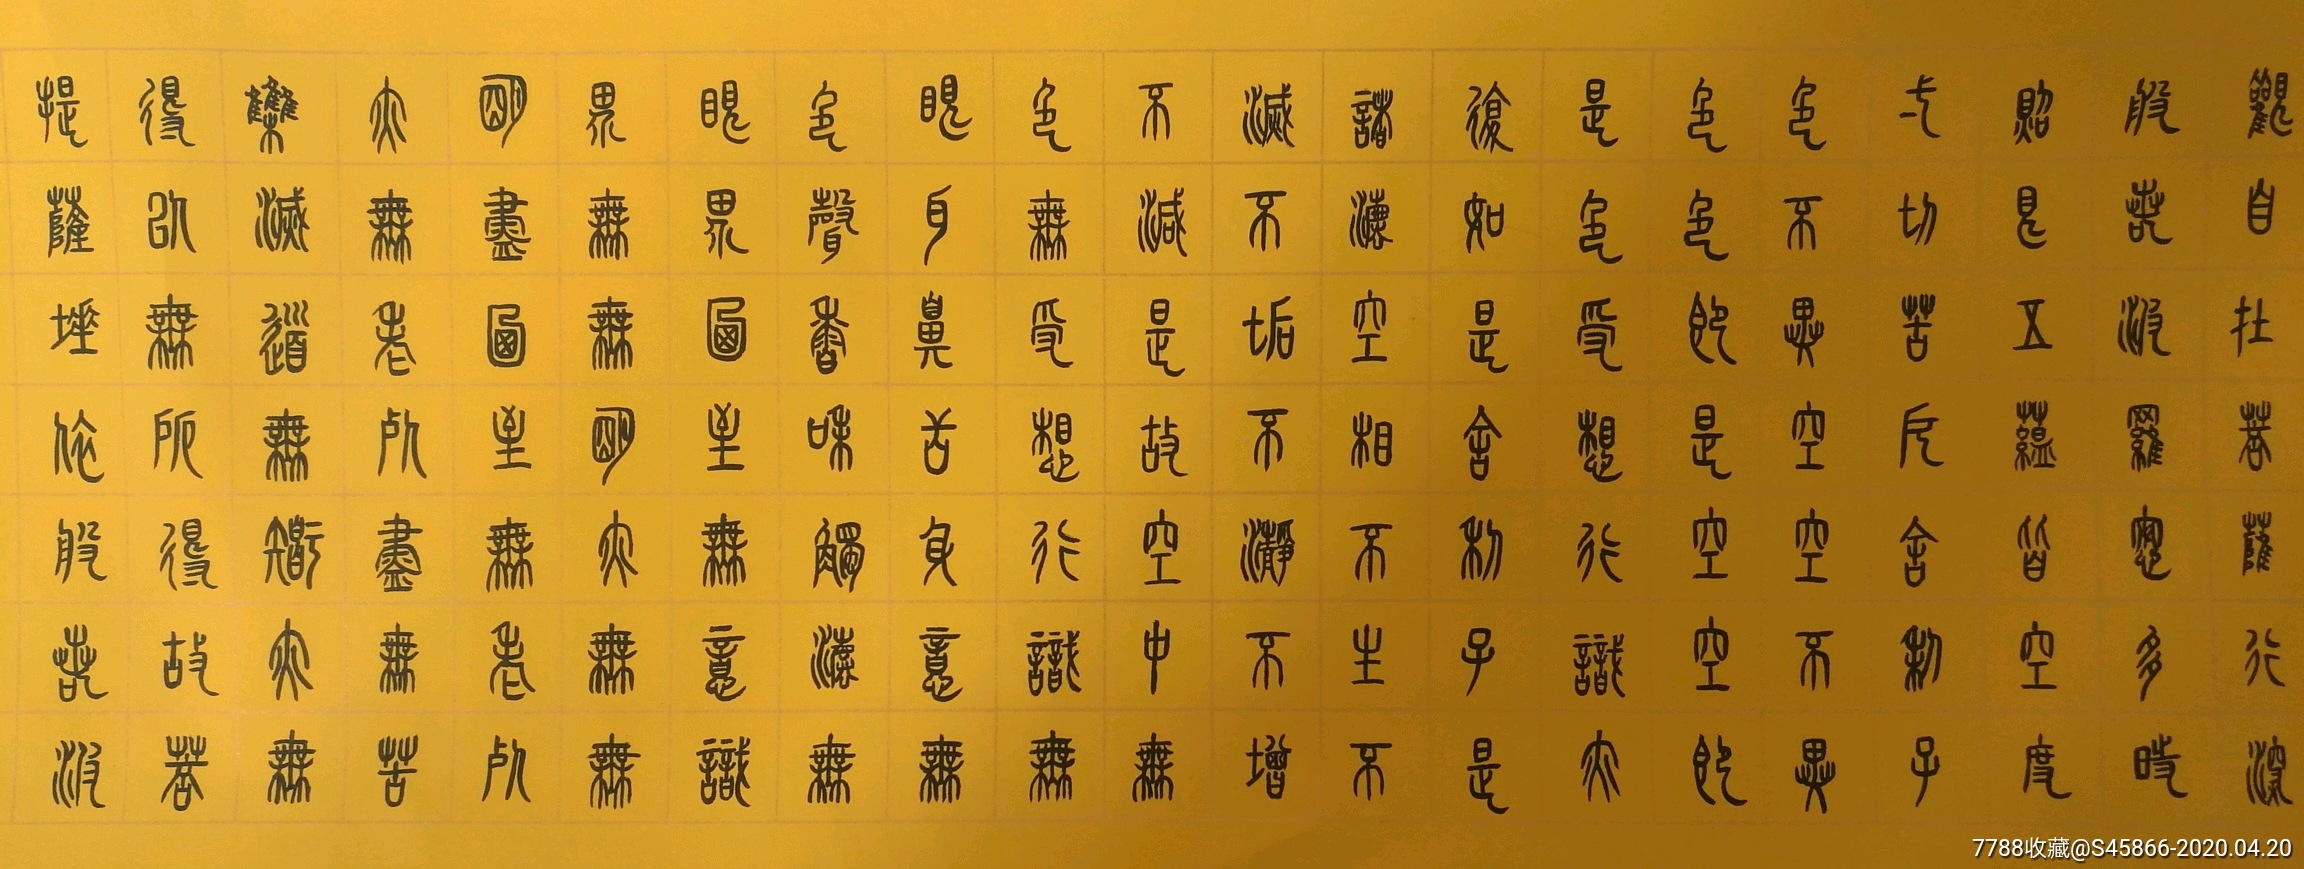 觀自在菩薩行深
般若波羅蜜多時
照見五蘊皆空度
一切苦厄舍利子
色不異空空不異
色色即是空空即
是色受想行識亦
復如是舍利子是
諸法空相不生不
滅不垢不淨不增
不減是故空中無
色無受想行識無
眼耳鼻舌身意無
色聲香味觸法無
眼界乃至無意識
界無無明亦無無
明盡乃至無老死
亦無老死盡無苦
集滅道無智亦無
得以無所得故菩
提薩埵依般若波
7788收藏@S45866-2020.04.20